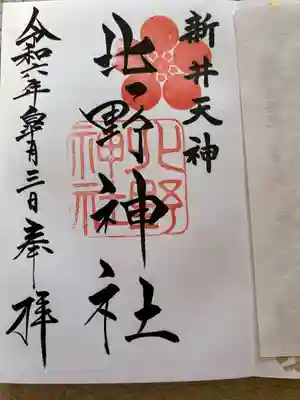 新井天神
北野神社
北野
神社
令和六年皐月三日奉拝